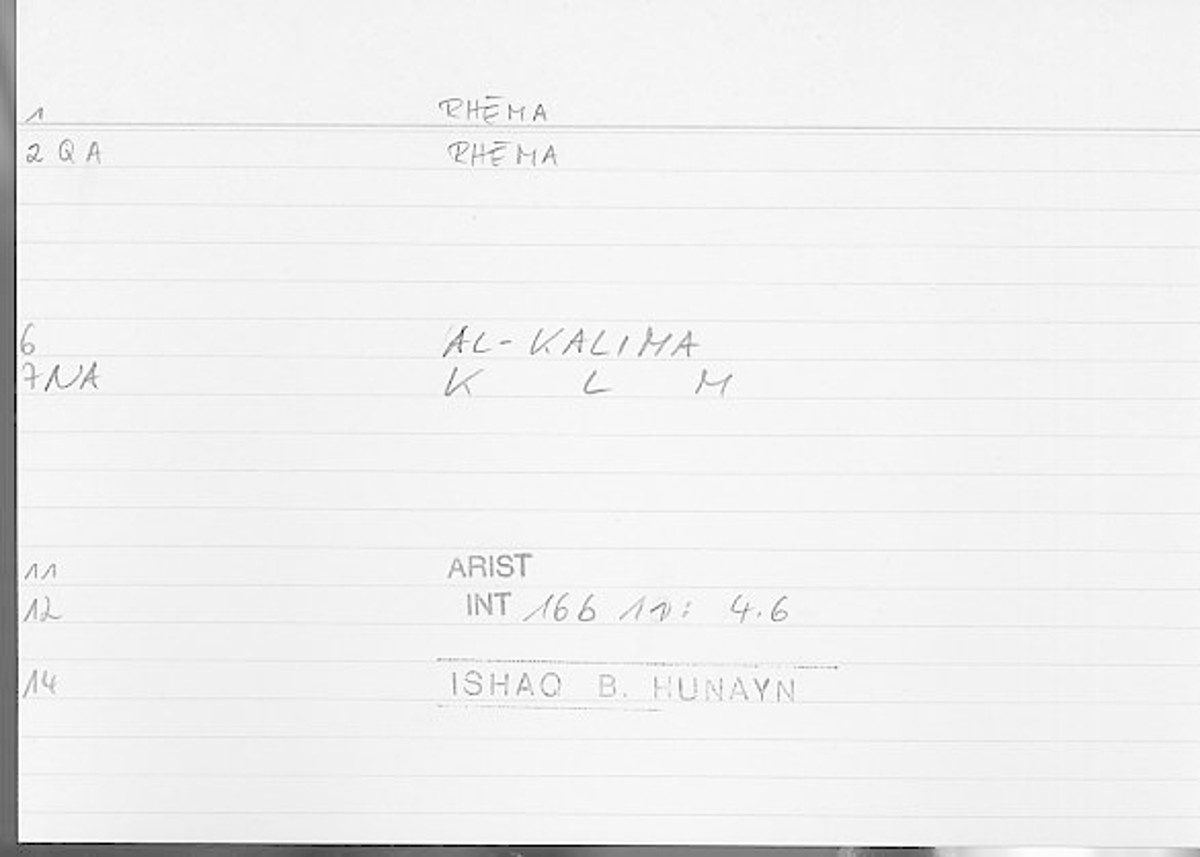 1 RHĒMA
2 Q A RHĒMA
6 AL-KALIMA
7 NA K L M
11 ARIST
12 INT 16b 1v: 4.6
14 ISHAQ B. HUNAYN